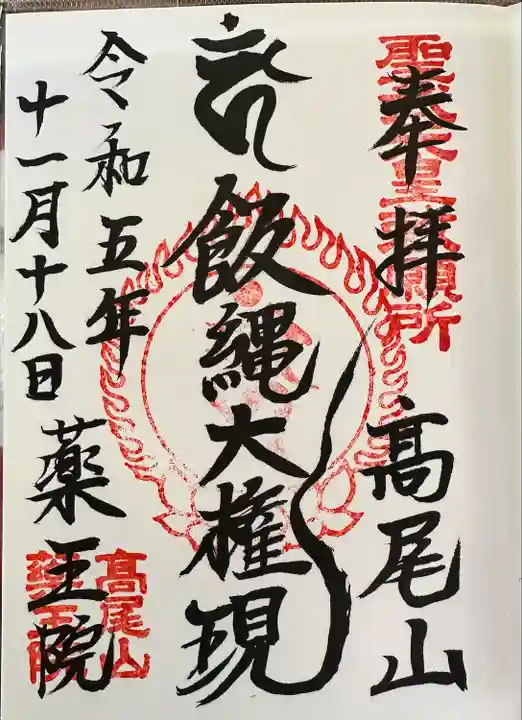 奉拝
高尾山
飯縄大権現
令和五年
薬王院
十一月十八日
高尾山
薬王院